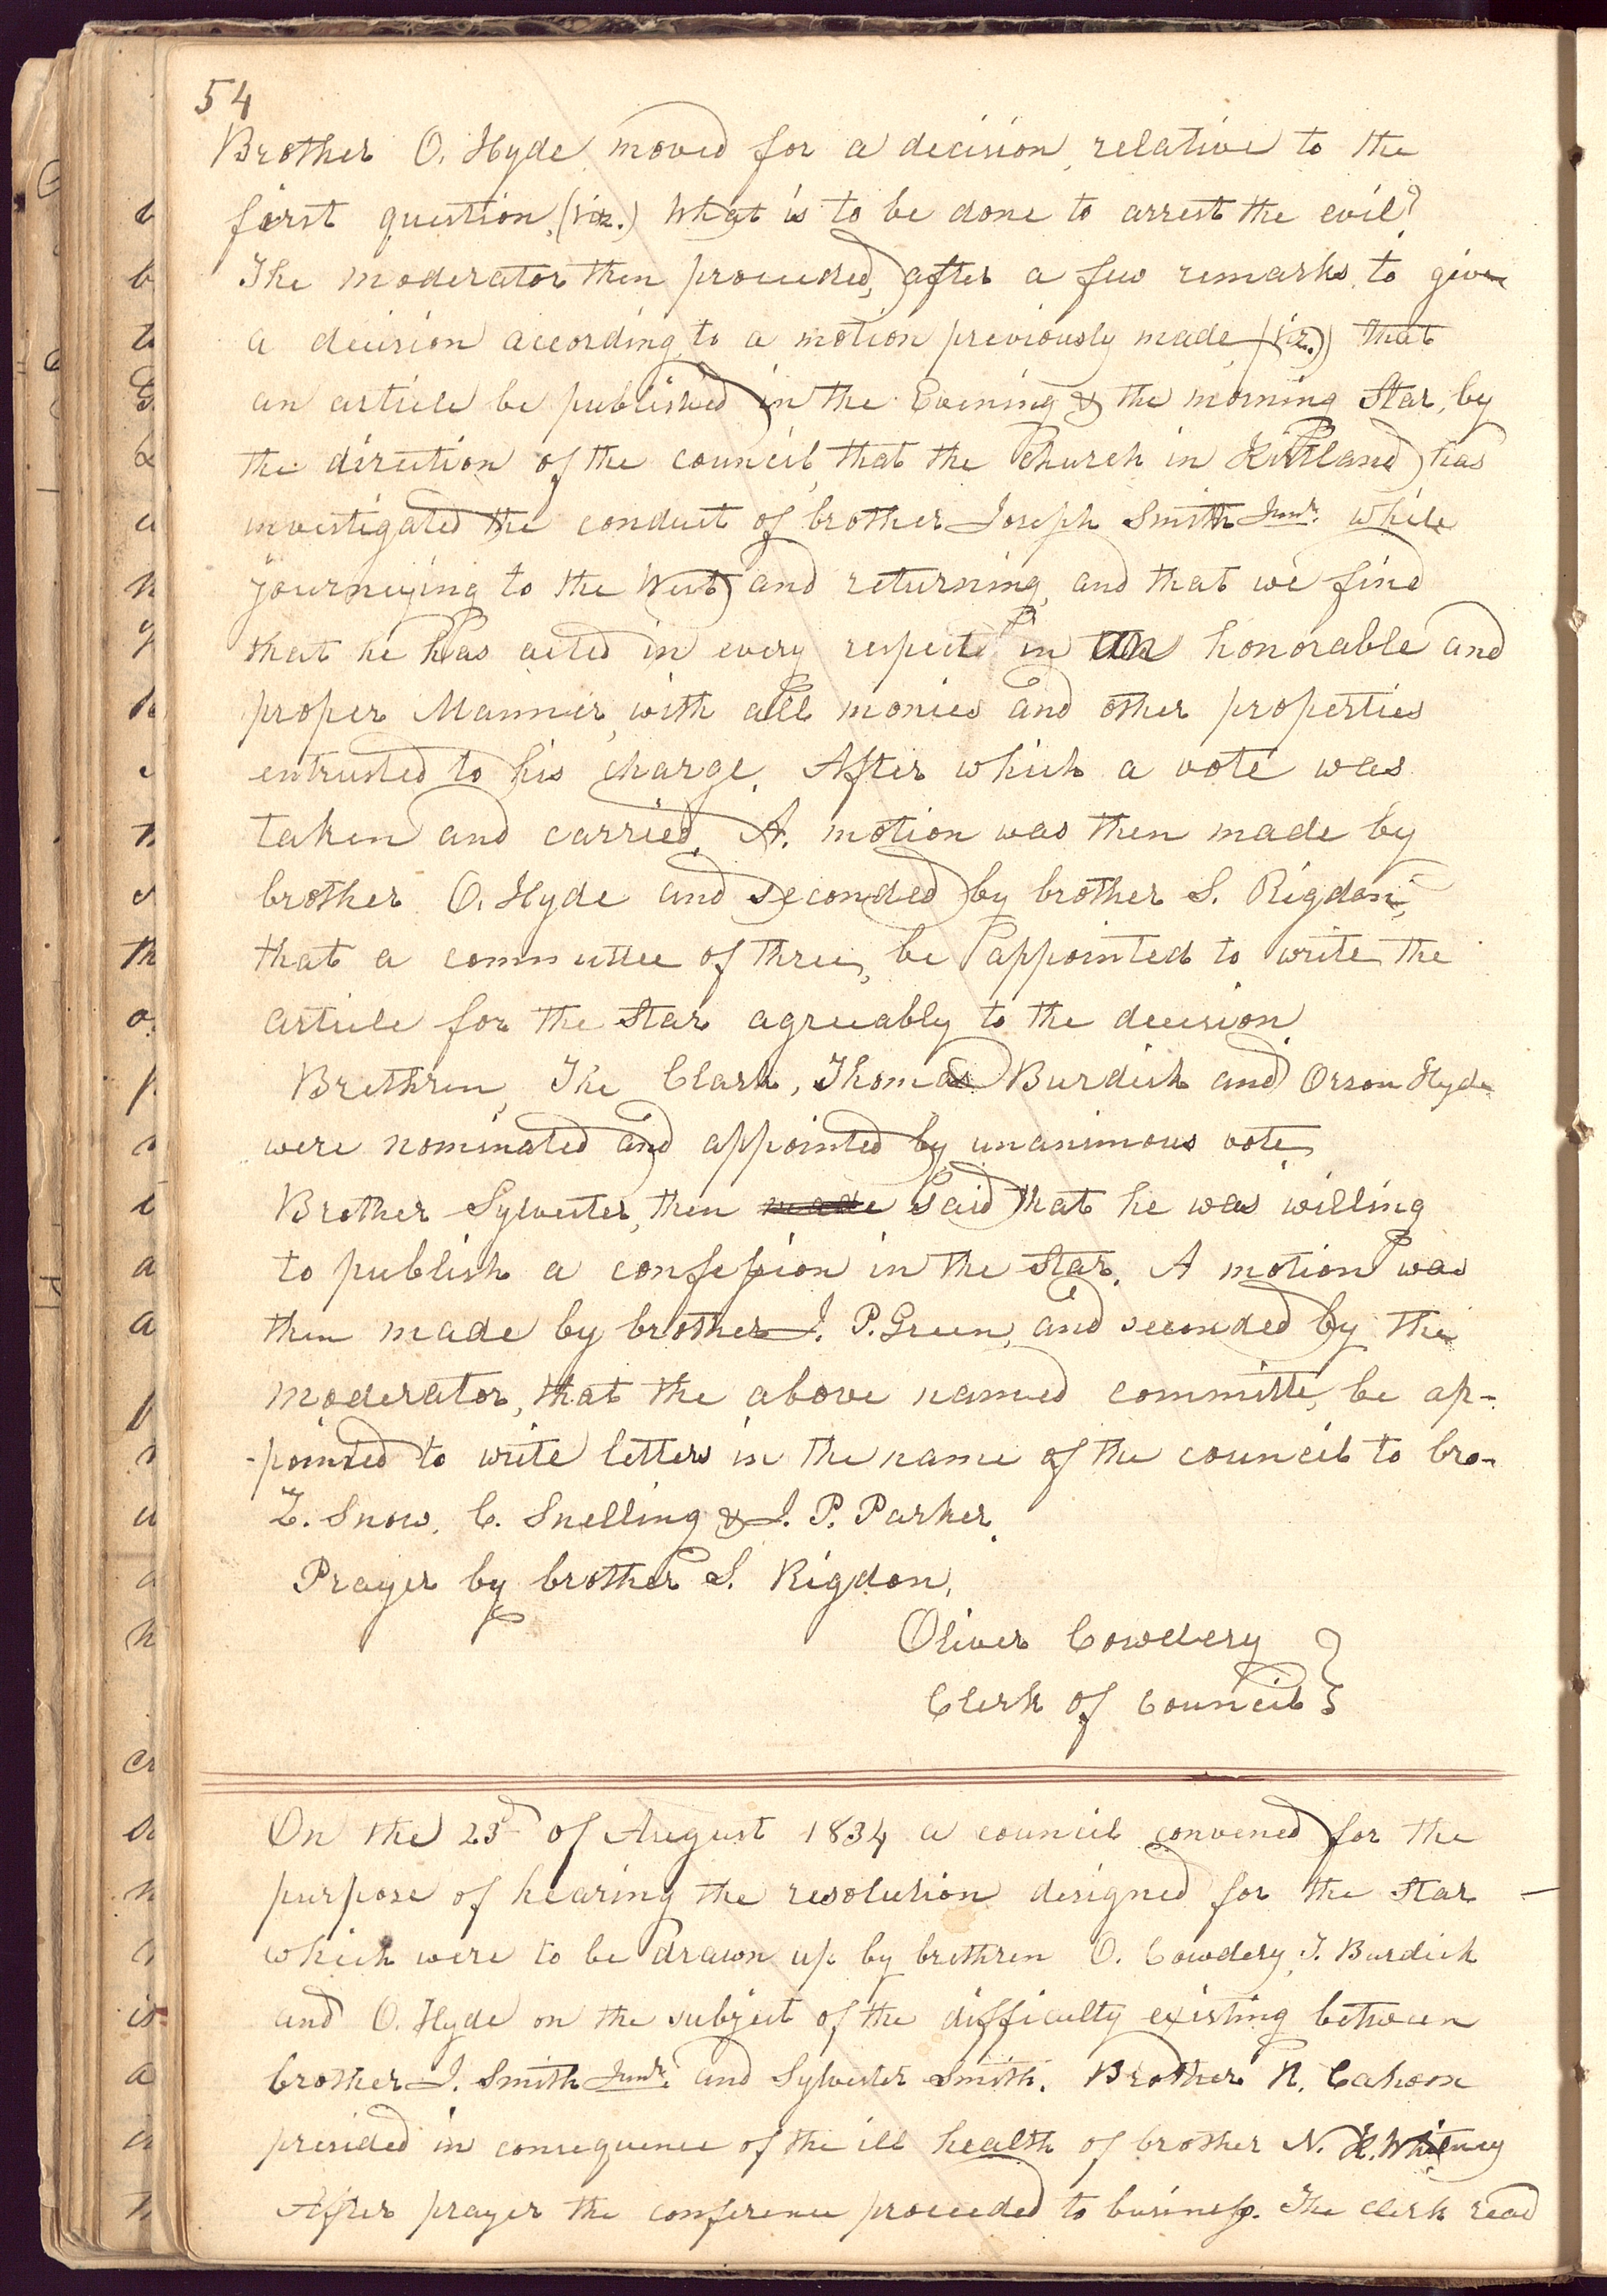 54
Brother O. Hyde moved for a decision relative to the
first question, (viz.) What is to be done to arrest the evil?
The moderator then proceeded, after a few remarks, to give
a decision according to a motion previously made, (viz.) that
an article be published in the Evening & the morning Star, by
the direction of the council, that the Church in Kirtland has
investigated the conduct of brother Joseph Smith Junr. while
journeying to the West and returning, and that we find
that he has acted in every respect in an honorable and
proper Manner, with all monies and other properties
entrusted to his charge. After which a vote was
taken and carried. A. motion was then made by
brother O. Hyde and seconded by brother S. Rigdon,
that a committee of three, be appointed to write the
article for the Star agreeably to the decision.
Brethren, The Clark, Thomas Burdick and Orson Hyde
were nominated and appointed by unanimous vote.
Brother Sylvester, then made said that he was willing
to publish a confession in the Star. A motion was
then made by brother J. P. Green, and seconded by the
moderator, that the above named committe, be ap-
-pointed to write letters in the name of the council to bro-
Z. Snow, C. Snelling & J. P. Parker.
Prayer by brother S. Rigdon.
Oliver Cowdery }
Clerk of Council }
On the 23d of August 1834 a council convened for the
purpose of hearing the resolution designed for the Star —
which were to be drawn up by brethren O. Cowdery, T. Burdick
and O. Hyde on the subject of the difficulty existing between
brother J. Smith Junr. and Sylvester Smith. Brother R. Cahoon
presided in consequence of the ill health of brother N. K. Whitney
After prayer the conference proceeded to business. The clerk read